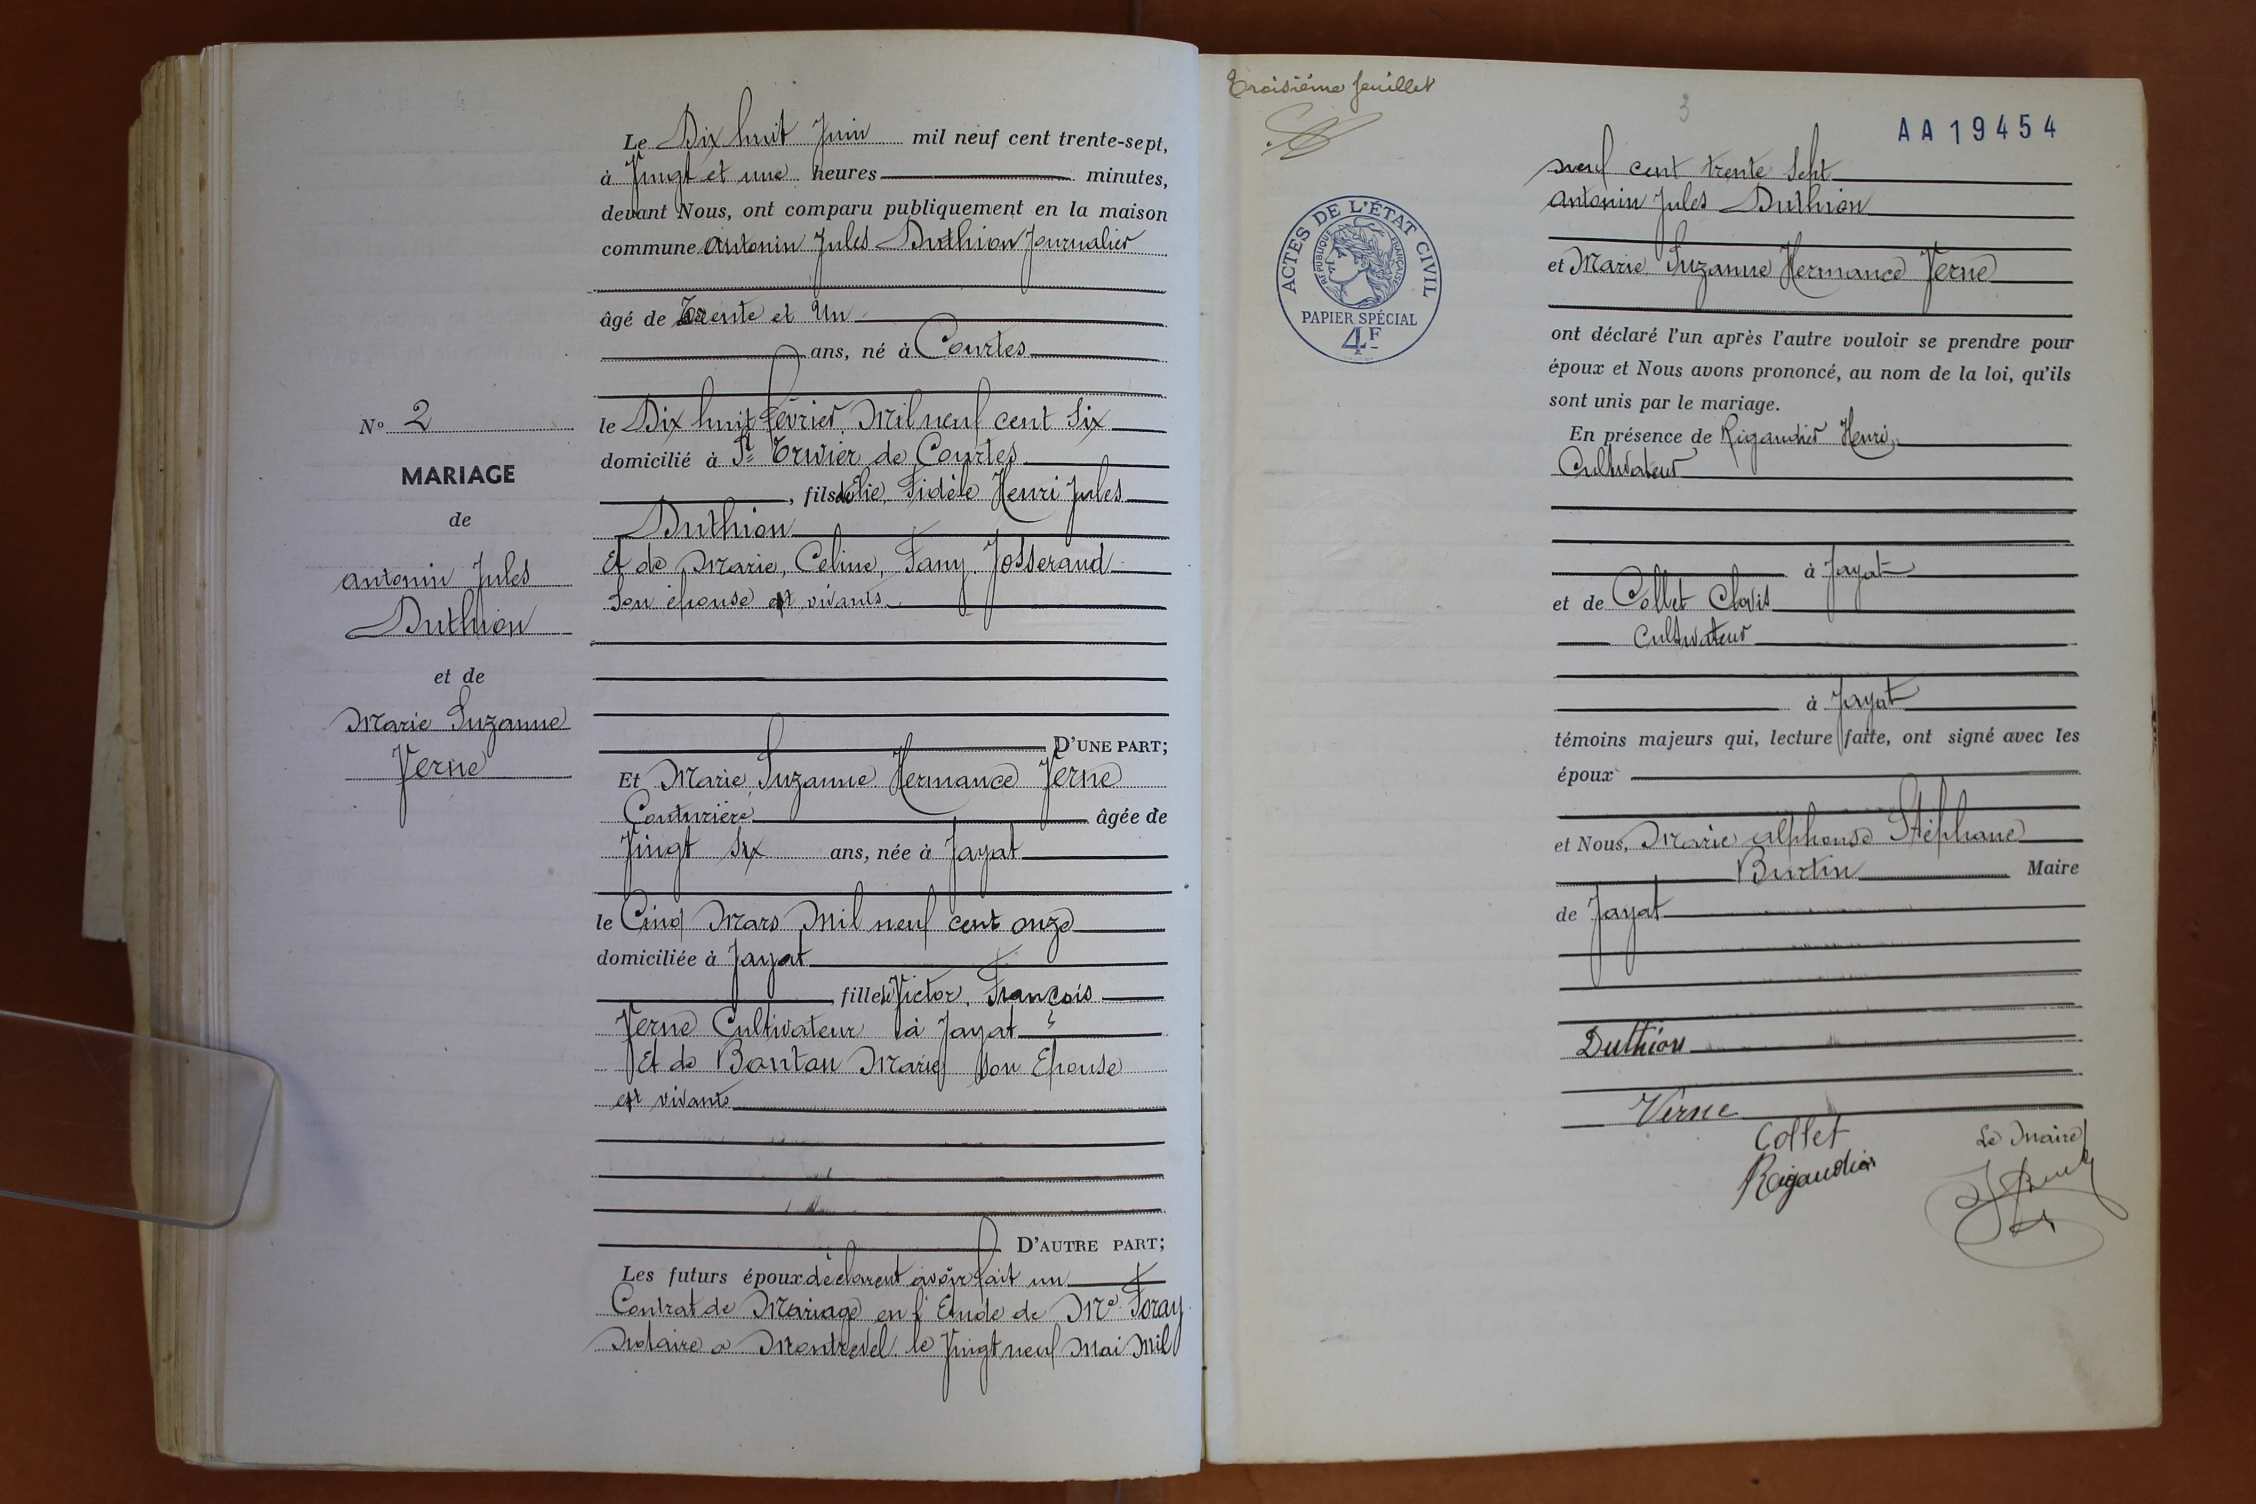 Le Dix huit Juin mil neuf cent trente-sept,
à Vingt et une heures minutes,
devant Nous, ont comparu publiquement en la maison
commune Antonin Jules Duthion Journalier
âgé de Trente et Un
ans, né à Courtes
le Dix huit février Mil neuf cent Six
domicilié à St Trivier de Courtes
, fils de Elie, Fidèle Henri Jules
Duthion
Et de Marie, Celine, Fany Josserand
Son épouse vivants
D'UNE PART;
Et Marie Suzanne Hermance Verne
Couturière âgée de
Vingt Six ans, née à Jayat
le Cinq Mars Mil neuf cent onze
domiciliée à Jayat
, fille de Victor, François
Verne Cultivateur à Jayat
Et de Bantan Marie son Epouse
vivants
D'AUTRE PART;
Les futurs époux déclarent avoir fait un
Contrat de Mariage en l'Etude de Me Foray
Notaire a Montrevel le Vingt neuf Mai Mil
No 2
MARIAGE
de
Antonin Jules
Duthion
et de
Marie Suzanne
Verne
Troisième feuillet
3
AA19454
ACTES DE L'ÉTAT CIVIL
RÉPUBLIQUE FRANÇAISE
PAPIER SPÉCIAL
4F
neuf cent trente Sept
Antonin Jules Duthion
et Marie Suzanne Hermance Verne
ont déclaré l'un après l'autre vouloir se prendre pour
époux et Nous avons prononcé, au nom de la loi, qu'ils
sont unis par le mariage.
En présence de Rigaudier Henri,
Cultivateur
à Jayat
et de Collet Clovis
Cultivateur
à Jayat
témoins majeurs qui, lecture faite, ont signé avec les
époux
et Nous, Marie Alphonse Stéphane
Burtin Maire
de Jayat
Duthion
Verne
Collet
Rigaudier
Le Maire